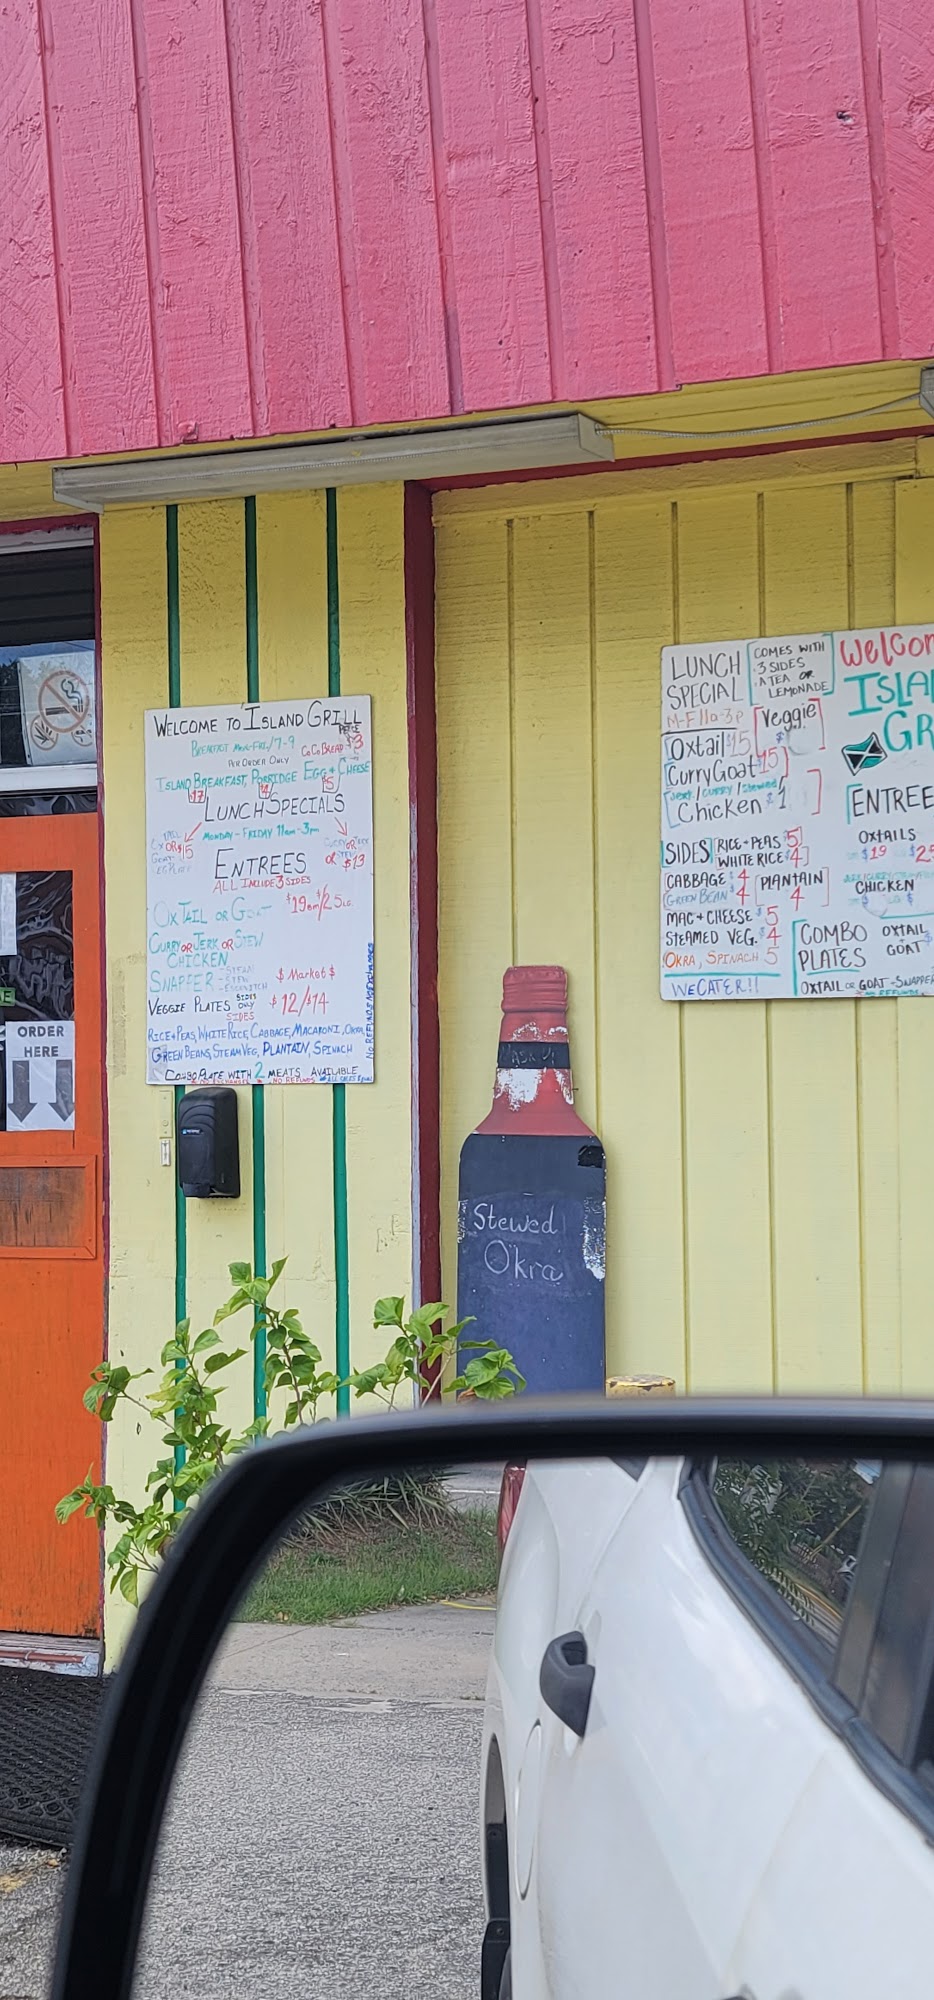 WELCOME TO ISLAND GRILL
BREAKFAST MON-FRI/7-9
PER ORDER ONLY
COCO BREAD $3
ISLAND BREAKFAST, PORRIDGE EGG & CHEESE
LUNCH SPECIALS
MONDAY - FRIDAY 11am-3pm
OR $15
OR $13
ENTREES
ALL INCLUDE 3 SIDES
OXTAIL OR GOAT $19sm/25LG.
CURRY OR JERK OR STEW
CHICKEN
SNAPPER $ Market $
VEGGIE PLATES SIDES ONLY $12/$14
SIDES
RICE & PEAS, WHITE RICE, CABBAGE, MACARONI, OKRA,
GREEN BEANS, STEAM VEG, PLANTAIN, SPINACH
COMBO PLATE WITH 2 MEATS AVAILABLE
NO EXCHANGES NO REFUNDS
ORDER
HERE
Stewed
Okra
LUNCH
SPECIAL
M-F 11a-3p
COMES WITH
3 SIDES
A TEA OR
LEMONADE
Oxtail $15
Veggie
Curry Goat 15
Jerk / Curry / Stewed
Chicken $1
SIDES RICE + PEAS 5
WHITE RICE 4
CABBAGE $4
GREEN BEAN $4
PLANTAIN
4
MAC & CHEESE $5
STEAMED VEG. $4
OKRA, SPINACH 5
WE CATER!!
Welcom
ISLA
GR
ENTREE
OXTAILS
$19 $25
CHICKEN
COMBO
PLATES
OXTAIL
GOAT
OXTAIL OR GOAT - SNAPPER